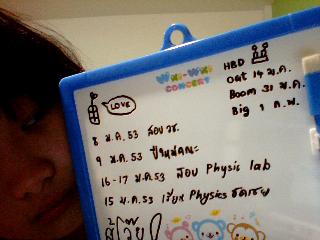 WHO-WHO
CONCERT
LOVE
HBD
Oat 14 ม.ค.
Boom 31 ม.ค.
Big 1 ก.พ.
8 ม.ค. 53 สอบ วช.
9 ม.ค. 53 ปีใหม่คณะ
16-17 ม.ค. 53 สอบ Physic lab
15 ม.ค. 53 เรียน Physics ชดเชย
สู้โว้ย!